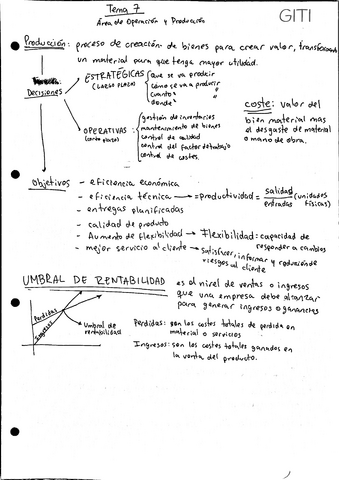 Tema 7
GITI
Área de Operación y Producción
Producción: proceso de creación de bienes para crear valor, transformando
un material para que tenga mayor utilidad.
Decisiones
ESTRATÉGICAS
(largo plazo)
que se va producir
cómo se va a producir
cuanto
donde
coste: valor del
bien material mas
el desgaste de material
o mano de obra.
OPERATIVAS
(corto plazo)
gestión de inventarios
mantenimiento de bienes
control de calidad
control del factor de trabajo
control de costes.
Objetivos
- eficiencia económica
- eficiencia técnica → productividad = salidas/entradas (unidades físicas)
- entregas planificadas
- calidad de producto
- Aumento de flexibilidad → Flexibilidad: capacidad de
responder a cambios
- mejor servicio al cliente → satisfacer, informar y reducción de
riesgos al cliente
UMBRAL DE RENTABILIDAD
es el nivel de ventas o ingresos
que una empresa debe alcanzar
para generar ingresos o ganancias
Perdidas
Ingresos
Umbral de
rentabilidad
Perdidas: son los costes totales de perdida en
material o servicios
Ingresos: son los costes totales ganados en
la venta del producto.